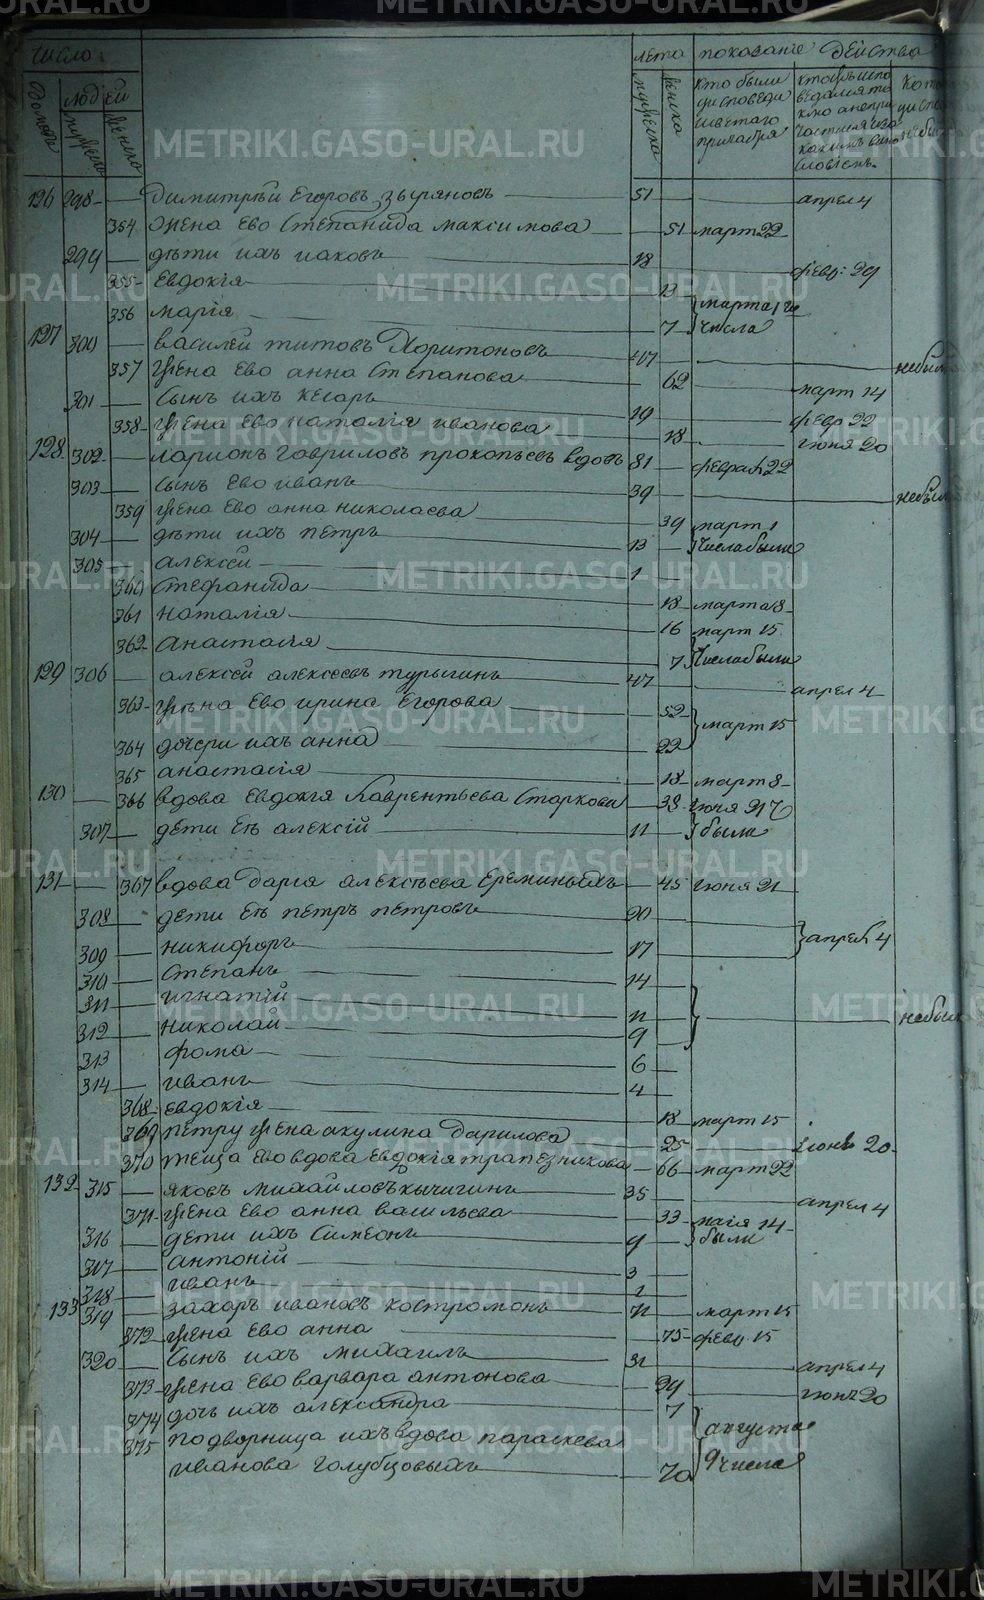 число лета показание действа
домовъ людей мужеска женска мужеска женска
кто были у исповеди и святаго причастия
126 298 Димитрѣй Егоровъ Зыряновъ 51 апрел 4
354 Жена Ево Степанида максимова 51 март 22
299 дѣти ихъ иаковъ 18 февр: 29
355 Евдокія 13
356 марія 7 числа
127 300 василей титовъ Харитоновъ 47
357 жена Ево анна Степанова 62 март 14
301 Сынъ ихъ Кесарь 19 февр 22
358 жена Ево наталія иванова 18 июня 20
128 302 ларионъ гавриловъ прокопьевъ вдовъ 81 феврал 22
303 Сынъ Ево иванъ 39
359 жена Ево анна николаева 39 март 1
304 дѣти ихъ петръ 13 числа были
305 алексей 1
360 Стефанида 18 марта 8
361 наталія 16 март 15
362 анастасія 7 числа были
129 306 алексей алексеевъ турыгинъ 47 апрел 4
363 жена Ево ирина Егорова 52 март 15
364 дочери ихъ анна 22
365 анастасія 18 март 8
130 366 вдова Евдокія Лаврентьева Старкова 39 июня 21
307 дети Ее алексій 11 были
131 367 вдова дарія алексѣева Ереминыхъ 45 июня 21
308 дети Ее петръ петровъ 20
309 никифоръ 17 апрел 4
310 Степанъ 14
311 игнатій 11
312 николай 9
313 фома 6
314 иванъ 4
368 Евдокія 18 март 15
369 петру жена акулина данилова 25 июня 20
370 теща Ево вдова Евдокія трапезникова 66 март 22
132 315 яковъ михайловъ кычигинъ 35 апрел 4
371 жена Ево анна васильева 33 маія 14
316 дети ихъ Симеонъ 9 были
317 антоній 3
318 иванъ 1
133 319 захаръ ивановъ костромонъ 71 март 15
372 жена Ево анна 75 февр 15
320 Сынъ ихъ михаилъ 31 апрел 4
373 жена Ево варвара антонова 29 июня 20
374 дочь ихъ александра 7 августа
375 подворница ихъ вдова параскева 9 числа
иванова голубцовыхъ 70
METRIKI.GASO-URAL.RU